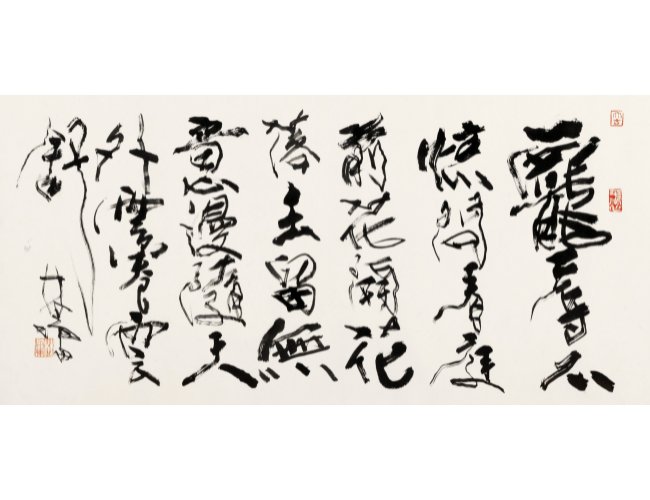 寵辱不
惊閒看庭
前花開花
落去留無
意漫隨天
外雲卷雲
舒